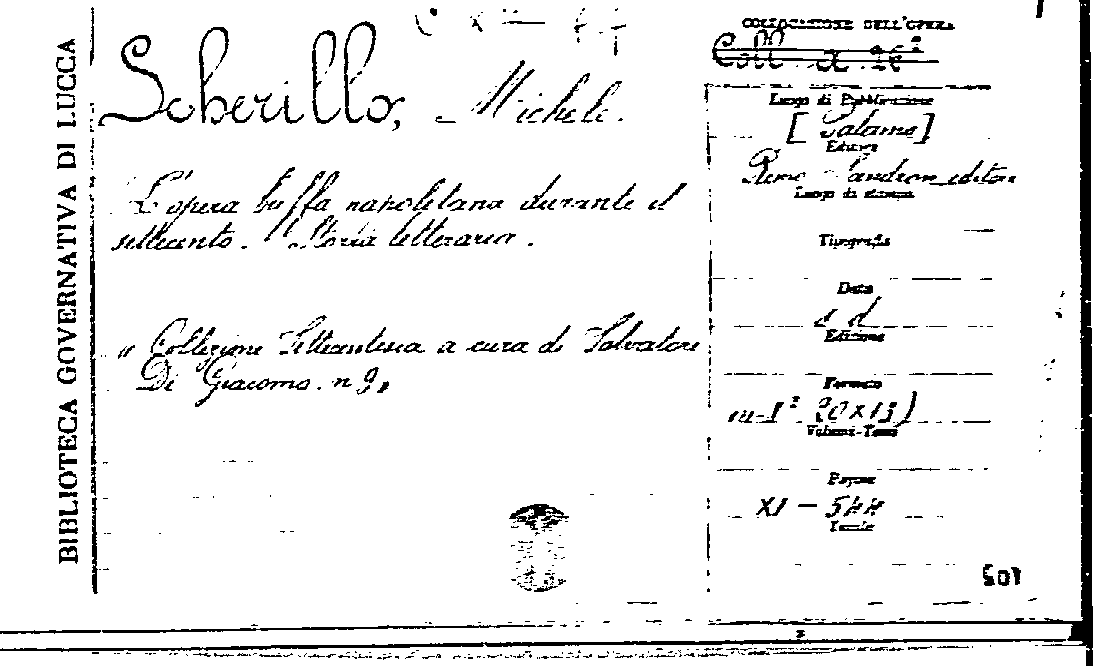 BIBLIOTECA GOVERNATIVA DI LUCCA
Scherillo, Michele.
L'opera buffa napoletana durante il
settecento. Storia letteraria.
" Collezione Settecentesca a cura di Salvatore
Di Giacomo. n 9"
COLLOCAZIONE DELL'OPERA
Coll
Luogo di Pubblicazione
[Palermo]
Editore
Remo Sandron editore
Luogo di stampa
Tipografia
Data
s d
Edizione
Formato
in-8° (20x13)
Volumi-Tomi
Pagine
XI - 544
Tavole